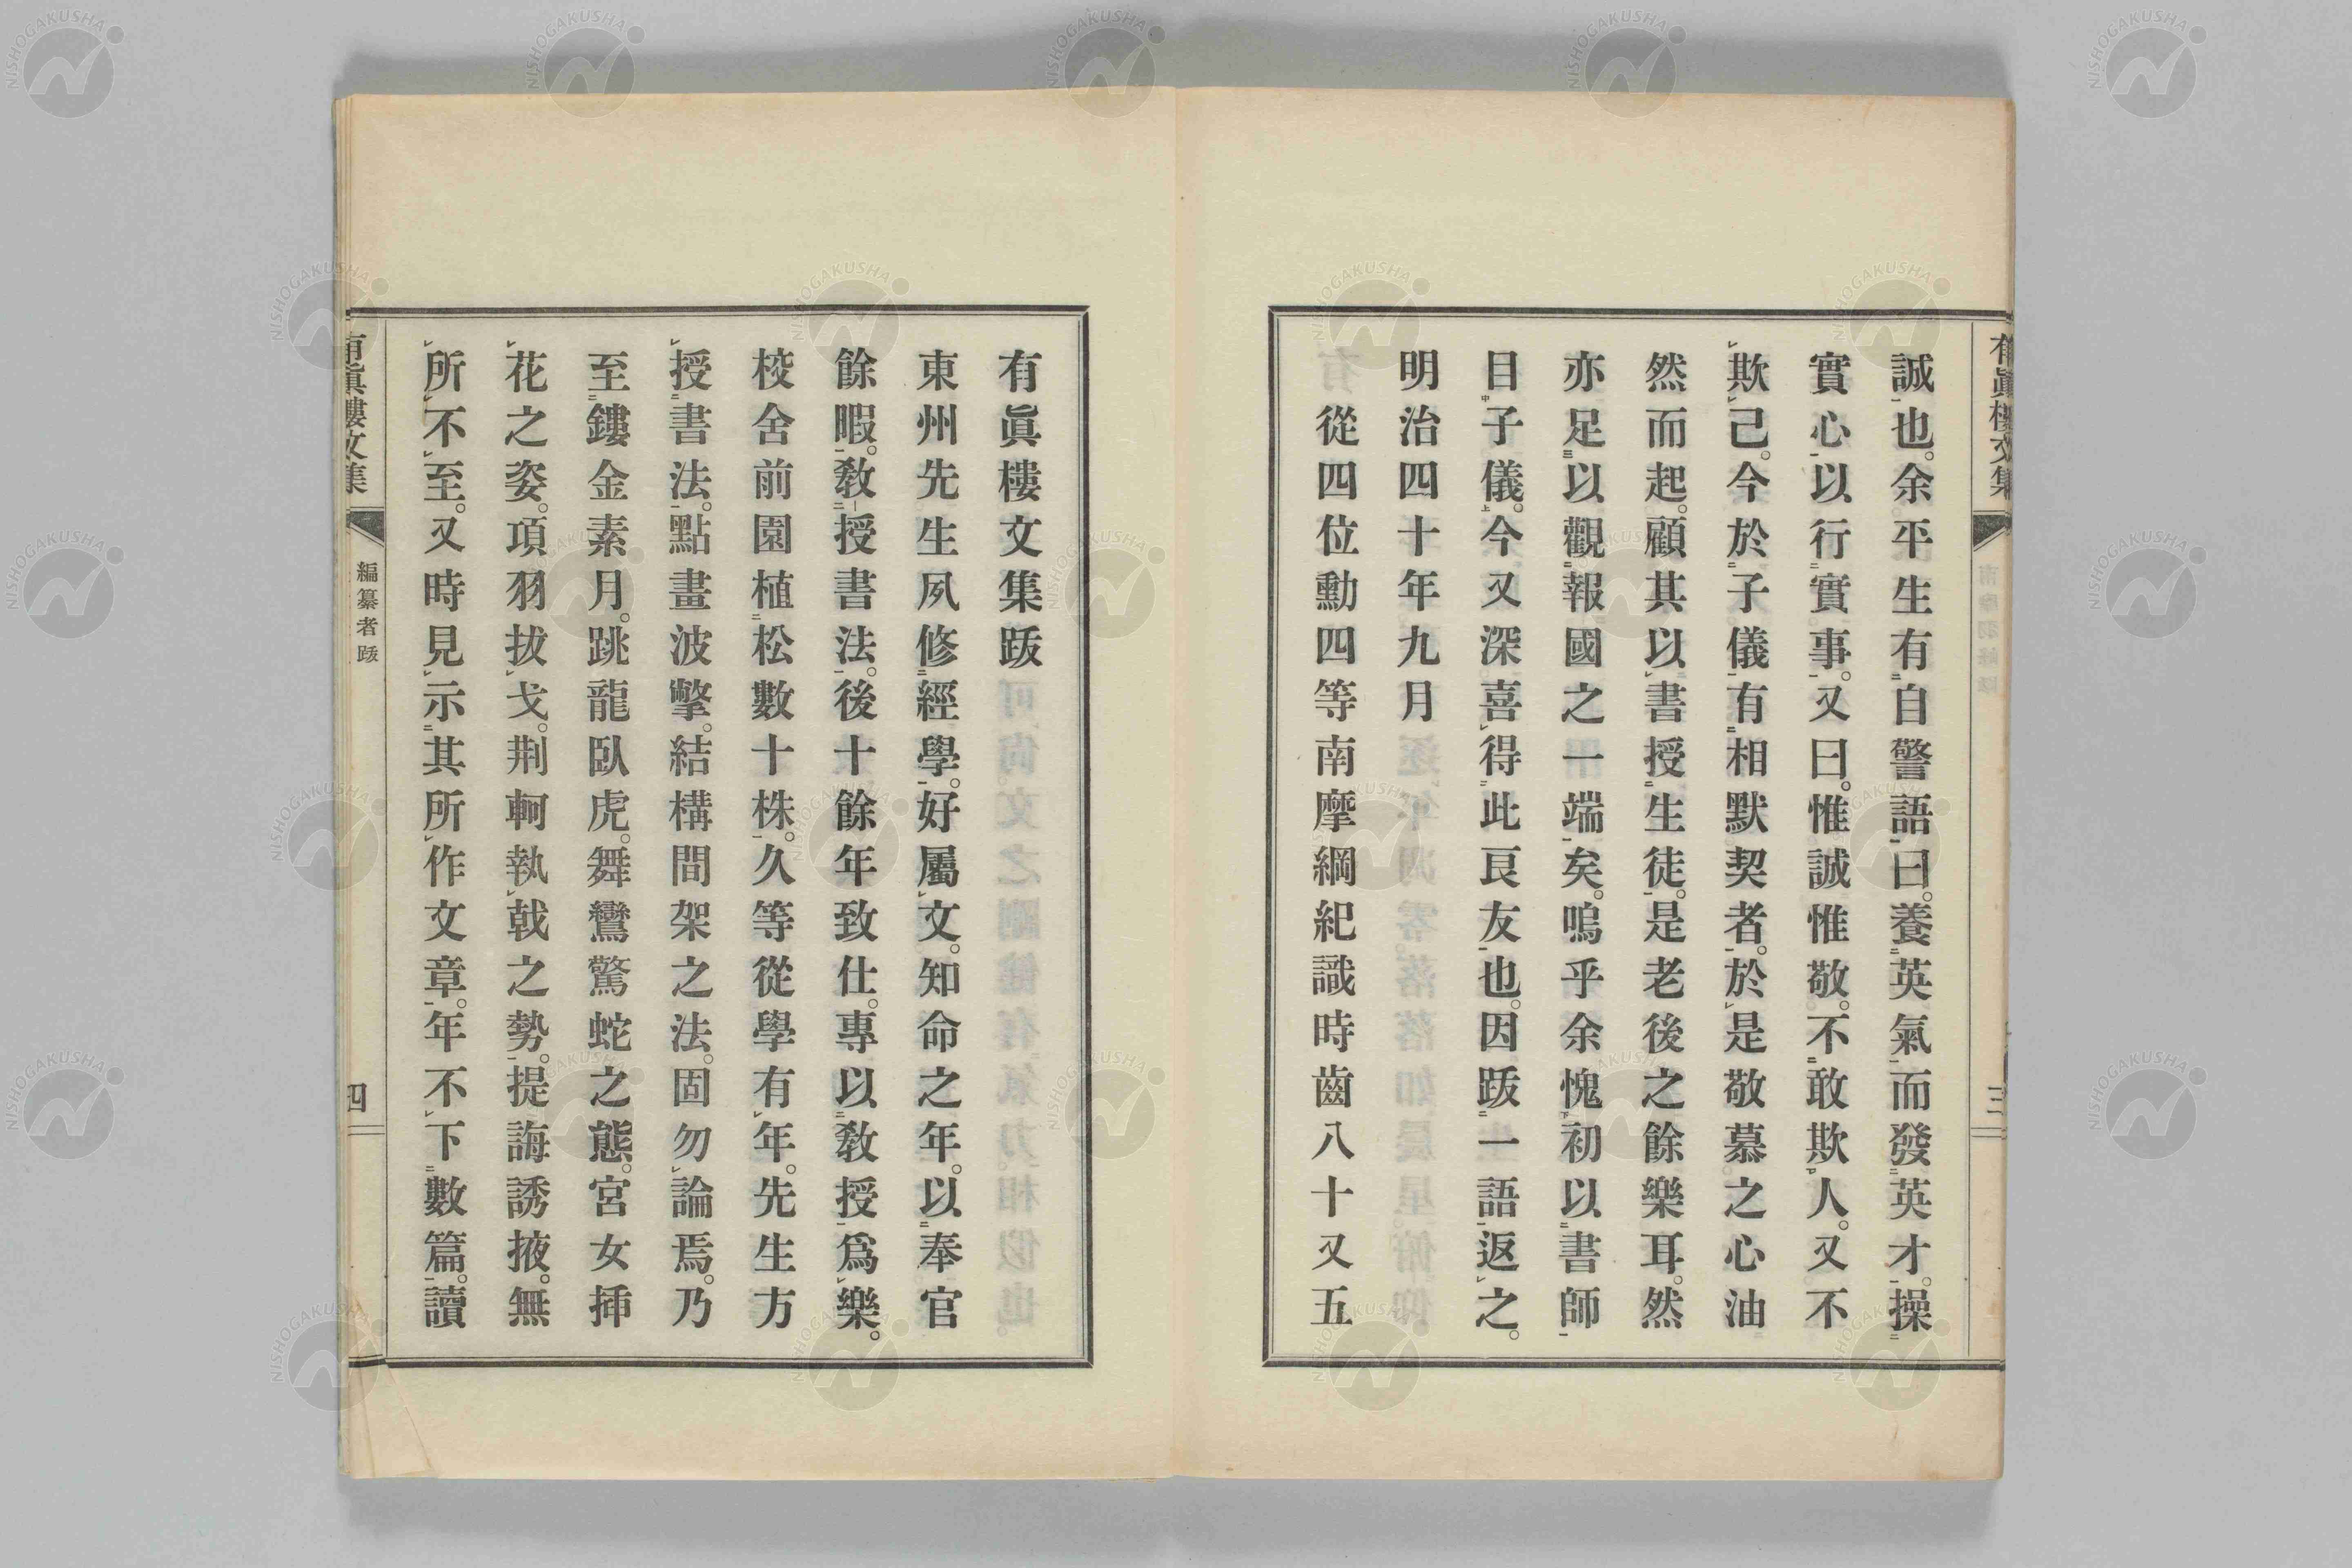 有眞樓文集
三
誠也。余平生有自警語曰。養英氣而發英才。操
實心以行實事。又曰。惟誠惟敬。不敢欺人。又不
欺己。今於子儀有相默契者。於是敬慕之心油
然而起。顧其以書授生徒。是老後之餘樂耳。然
亦足以觀報國之一端矣。嗚乎余愧初以書師
目子儀。今又深喜得此良友也。因跋一語返之。
明治四十年九月
從四位勳四等南摩綱紀識時齒八十又五
有眞樓文集跋
東州先生夙修經學。好屬文。知命之年。以奉官
餘暇。敎授書法。後十餘年致仕。專以敎授爲樂。
校舍前園植松數十株。久等從學有年。先生方
授書法。點畫波撆。結構間架之法。固勿論焉。乃
至鏤金素月。跳龍臥虎。舞鸞驚蛇之態。宮女揷
花之姿。項羽拔戈。荆軻執戟之勢。提誨誘掖。無
所不至。又時見示其所作文章。年不下數篇。讀
有眞樓文集
編纂者跋
四
NISHOGAKUSHA